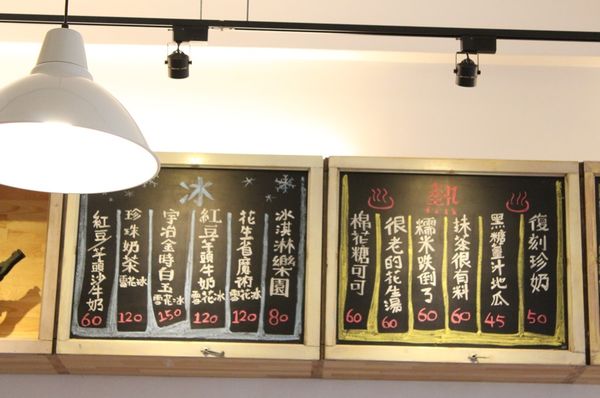 冰
冰淇淋樂園 80
花生省魔術雪花冰 120
紅豆芋頭牛奶雪花冰 120
宇治金時白玉雪花冰 150
珍珠奶茶雪花冰 120
紅豆芋頭沙牛奶 60
熱
復刻珍奶 50
黑糖薑汁地瓜 45
抹茶很有料 60
糯米跌倒了 60
很老的花生湯 60
棉花糖可可 60